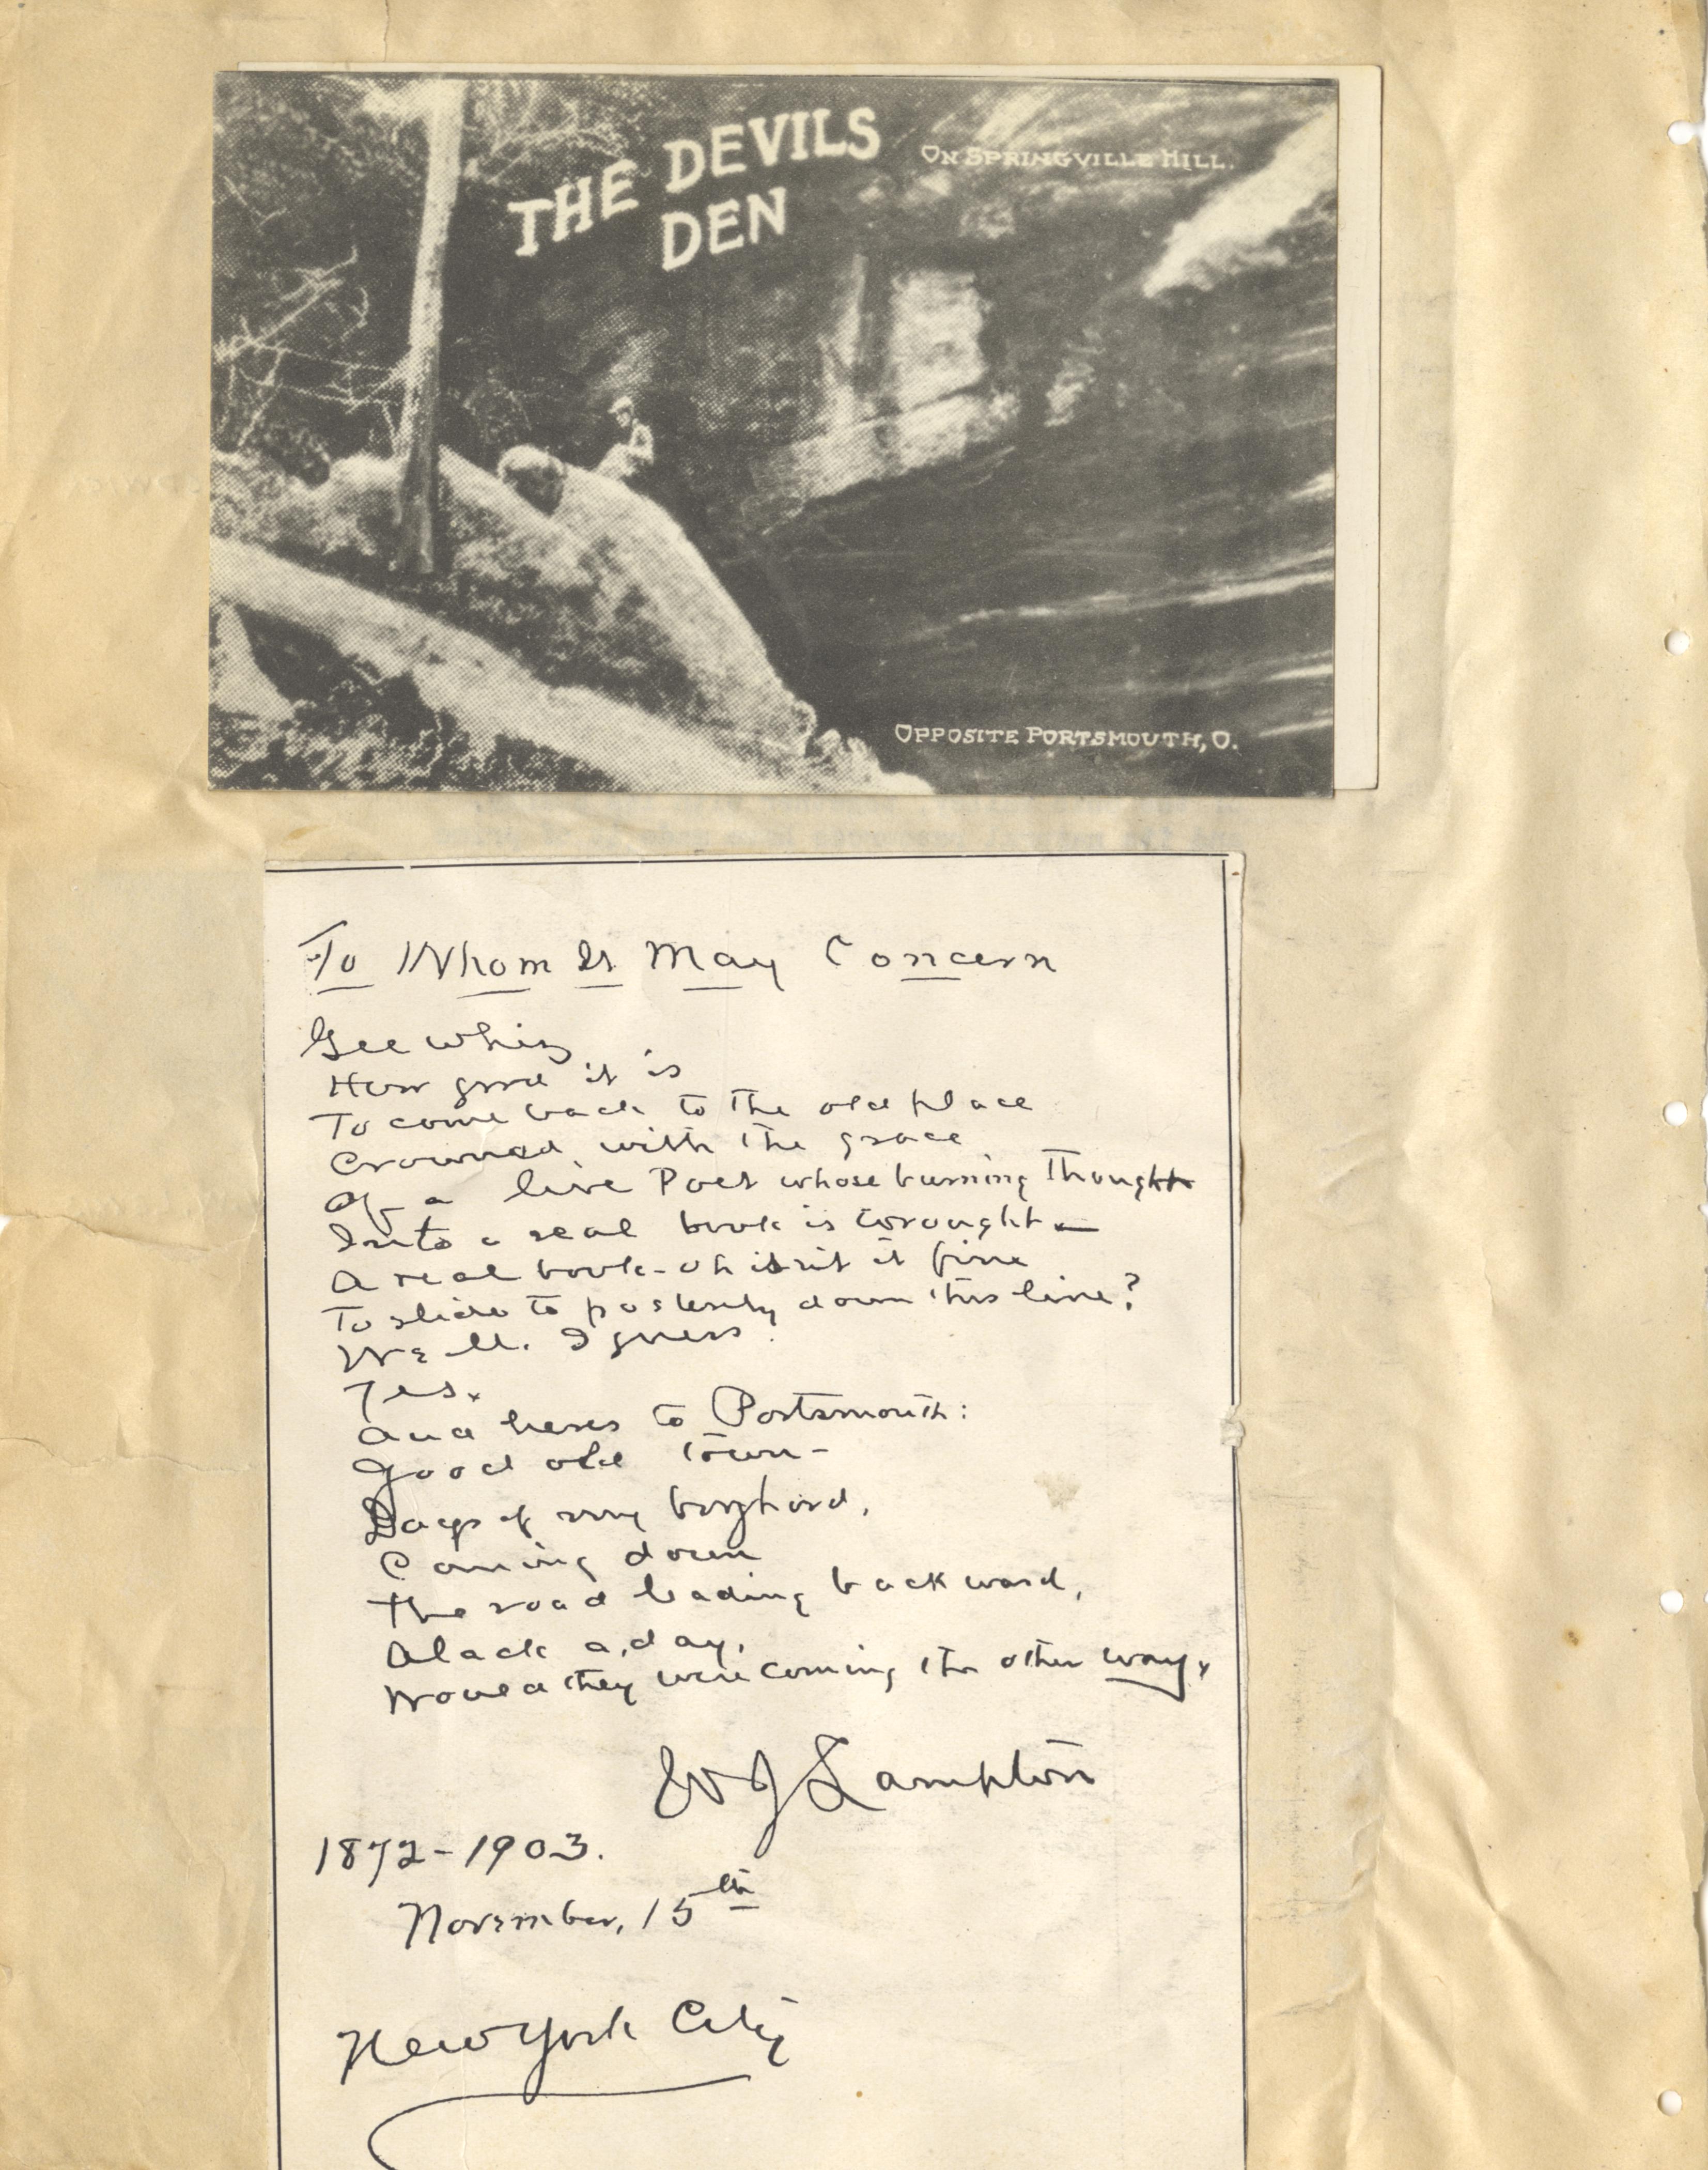 THE DEVILS
DEN
ON SPRINGVILLE HILL.
OPPOSITE PORTSMOUTH, O.
To Whom It May Concern
Gee whiz
How good it is
To come back to the old place
Crowned with the grace
Of a live Poet whose burning Thought
Into a real book is wrought—
A real book-oh isn't it fine
To slide to posterity down this line?
Well. I guess
Yes.
And heres to Portsmouth:
Good old Town-
Days of my boyhood,
Coming down
The road leading backward,
Alack a,day,
Would they were coming the other way.
W J Lampton
1872-1903.
November, 15th
New York City